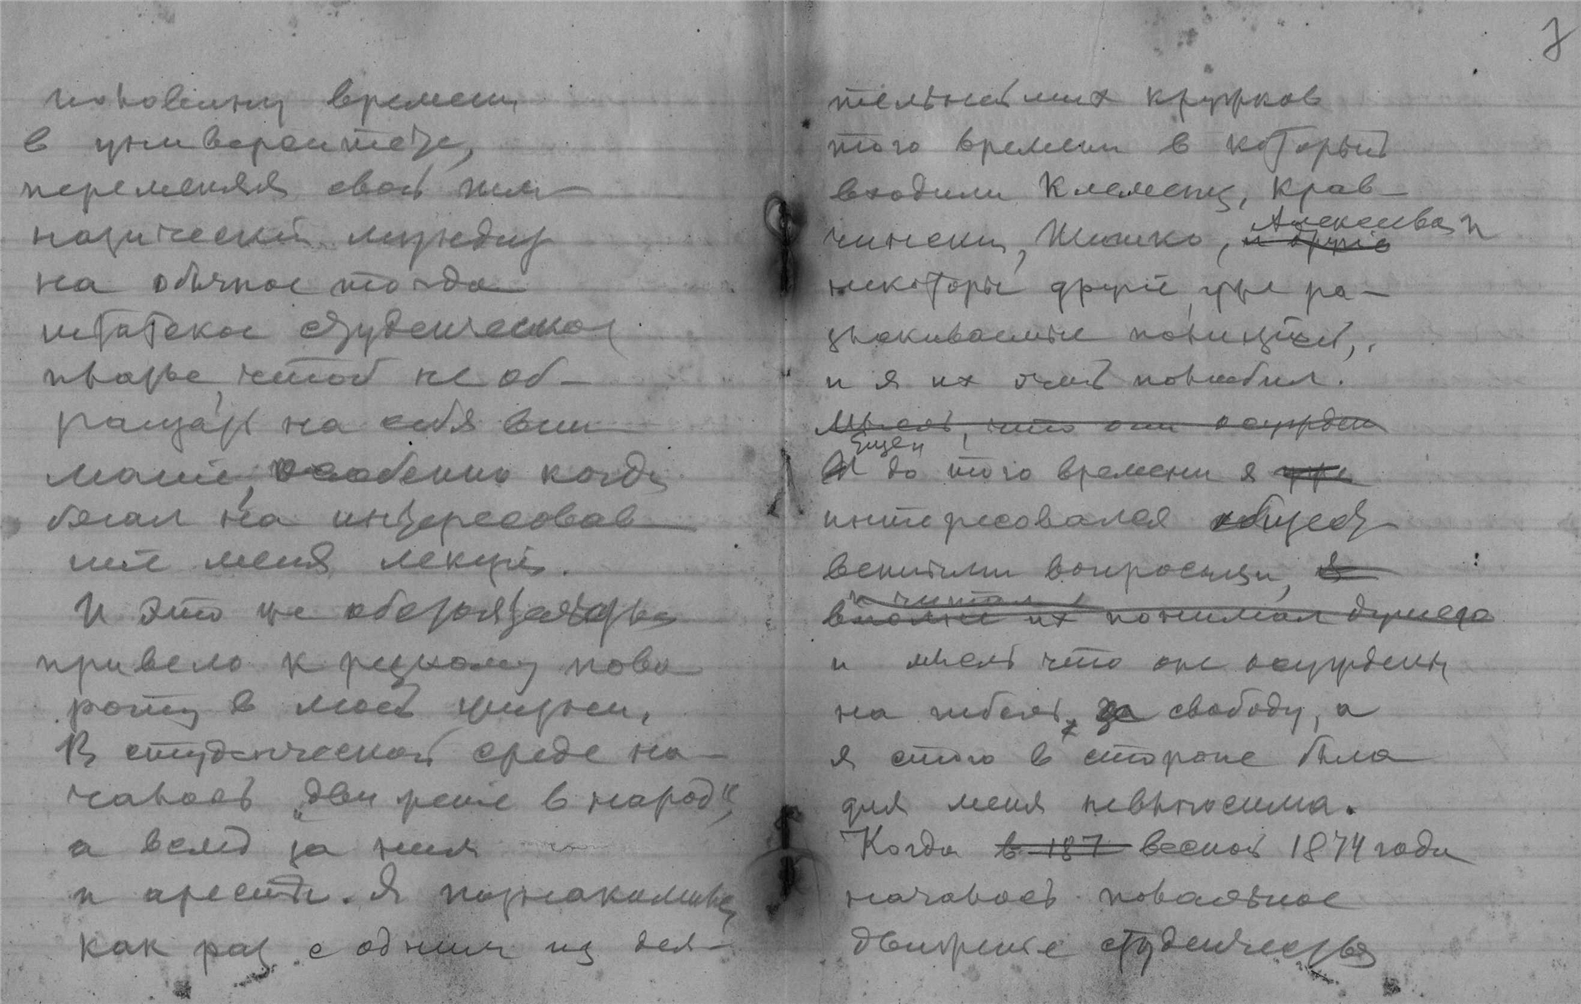 половину времени
в университете,
переменяя свой гим-
назический мундир
на обычное тогда
штатское студенческое
платье, чтоб не об-
ращать на себя вни
мание, особенно когда
бегал на интересовав-
шие меня лекции.
И это же обстоятельство
привело к резкому пово
роту в моей жизни.
В студенческой среде на-
чалось „движение в народ",
а вслед за ним
и аресты. Я познакомился
как раз с одним из дея-
7
тельнейших кружков
того времени в который
входили Клеменц, Крав-
чинский, Шишко, и другие Алексеева и
некоторые другие, уже ра-
зыскиваемые полицией,
и я их очень полюбил.
Мысль, что они осужден
Еще и
И до того времени я
интересовался общест-
венными вопросами, в
и читал
вполне их понимал душего
и мысль что они осуждены
на гибель за свободу, а
я стою в стороне была
для меня невыносима.
Когда в 187 весной 1874 года
началось повальное
движение студенчества